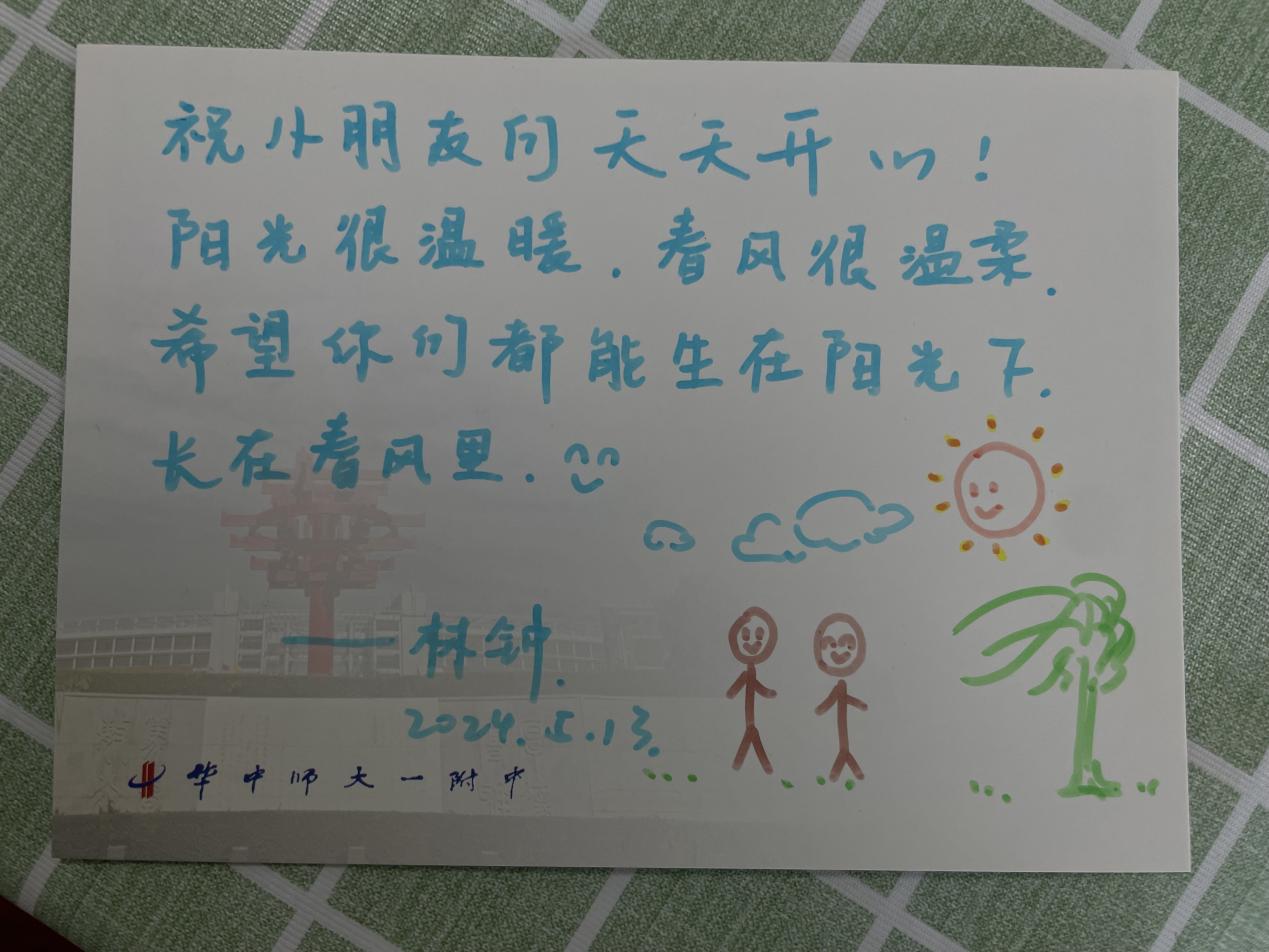 祝小朋友们天天开心!
阳光很温暖.春风很温柔.
希望你们都能生在阳光下.
长在春风里.
——林钟.
2024.5.13.
华中师大一附中